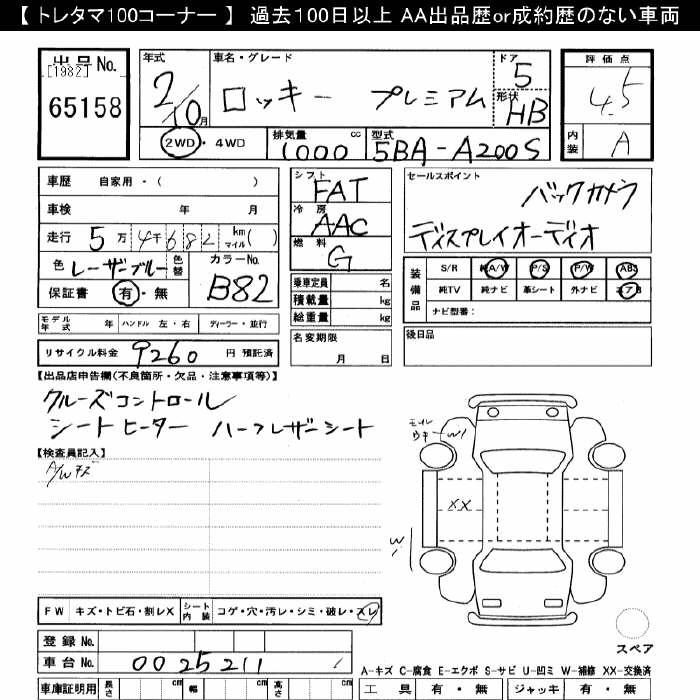 【 トレタマ100コーナー 】 過去100日以上 AA出品歴or成約歴のない車両
出品 No.
[1982]
65158
年式
2/10月
車名・グレード
ロッキー プレミアム
ドア
5
形状
HB
評価点
4.5
内装 A
2WD ・ 4WD
排気量 cc
1000
型式
5BA-A200S
車歴 自家用・( )
車検 年 月
走行 5万 4千 6 8 2 km マイル( )
色 レーザーブルー 色替
カラーNo. B82
保証書 有・無
シフト FAT
冷房 AAC
燃料 G
乗車定員 名
積載量 kg
総重量 kg
セールスポイント
バックカメラ
ディスプレイオーディオ
装備品
S/R 純A/W P/S P/W ABS
純TV 純ナビ 革シート 外ナビ エアB
ナビ型番:
モデル年式 年 ハンドル 左・右 ディーラー・並行
名変期限
月 日
後日品
リサイクル料金 9260 円 預託済
【出品店申告欄(不良箇所・欠品・注意事項等)】
クルーズコントロール
シートヒーター ハーフレザーシート
【検査員記入】
A/Wキズ
モール
ウキ
W1
XX
W1
FW キズ・トビ石・割レX シート内装 コゲ・穴・汚レ・シミ・破レ・スレ
登録 No.
車台 No. 0025211
スペア
A-キズ C-腐食 E-エクボ S-サビ U-凹ミ W-補修 XX-交換済
車庫証明用 長さ cm 幅 cm 高さ cm
工具 有・無 ジャッキ 有・無